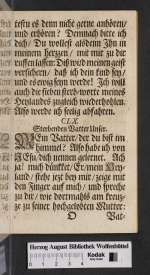 testu es denn nicht gerne anhören/
und erhören? Demnach bitte ich
dich / Du wollest alsdenn Ihn in
meinem hertzen / mit mir zu dir
ruffen lassen: Diß wird meinen geist
versichern / daß ich dein kind sey /
und es ewig seyn werde! Ich will
auch die sieben sterb-worte meines
Heylandes zugleich wiederhohlen.
Also werde ich seelig abfahren.
CLX.
Sterbenden Vatter Unser.
MEin Vatter / der du bist im
himmel! Also habe ich von
JEsu / dich nennen gelernet. Ach
ja! mich düncket / Er / mein Hey-
land / stehe jetzt bey mir / zeige mit
den Finger auf mich / und spreche
zu dir / wie dortmahls am kreu-
tze zu seiner hochgelobten Mutter:
O Vat-
Herzog August Bibliothek Wolfenbüttel
Kodak